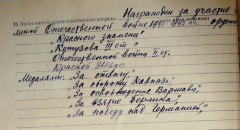 16. Какие имеет правительственные награды Награжден за участие
в Отечественной войне 1941-1945 г. орден
"Красного знамени"
"Кутузова III ст"
Отечественной войны II ст.
Красной Звезды
Медалями: "За отвагу",
"За оборону Кавказа"
"За освобождение Варшавы",
"За взятие Берлина",
"За победу над Германией".